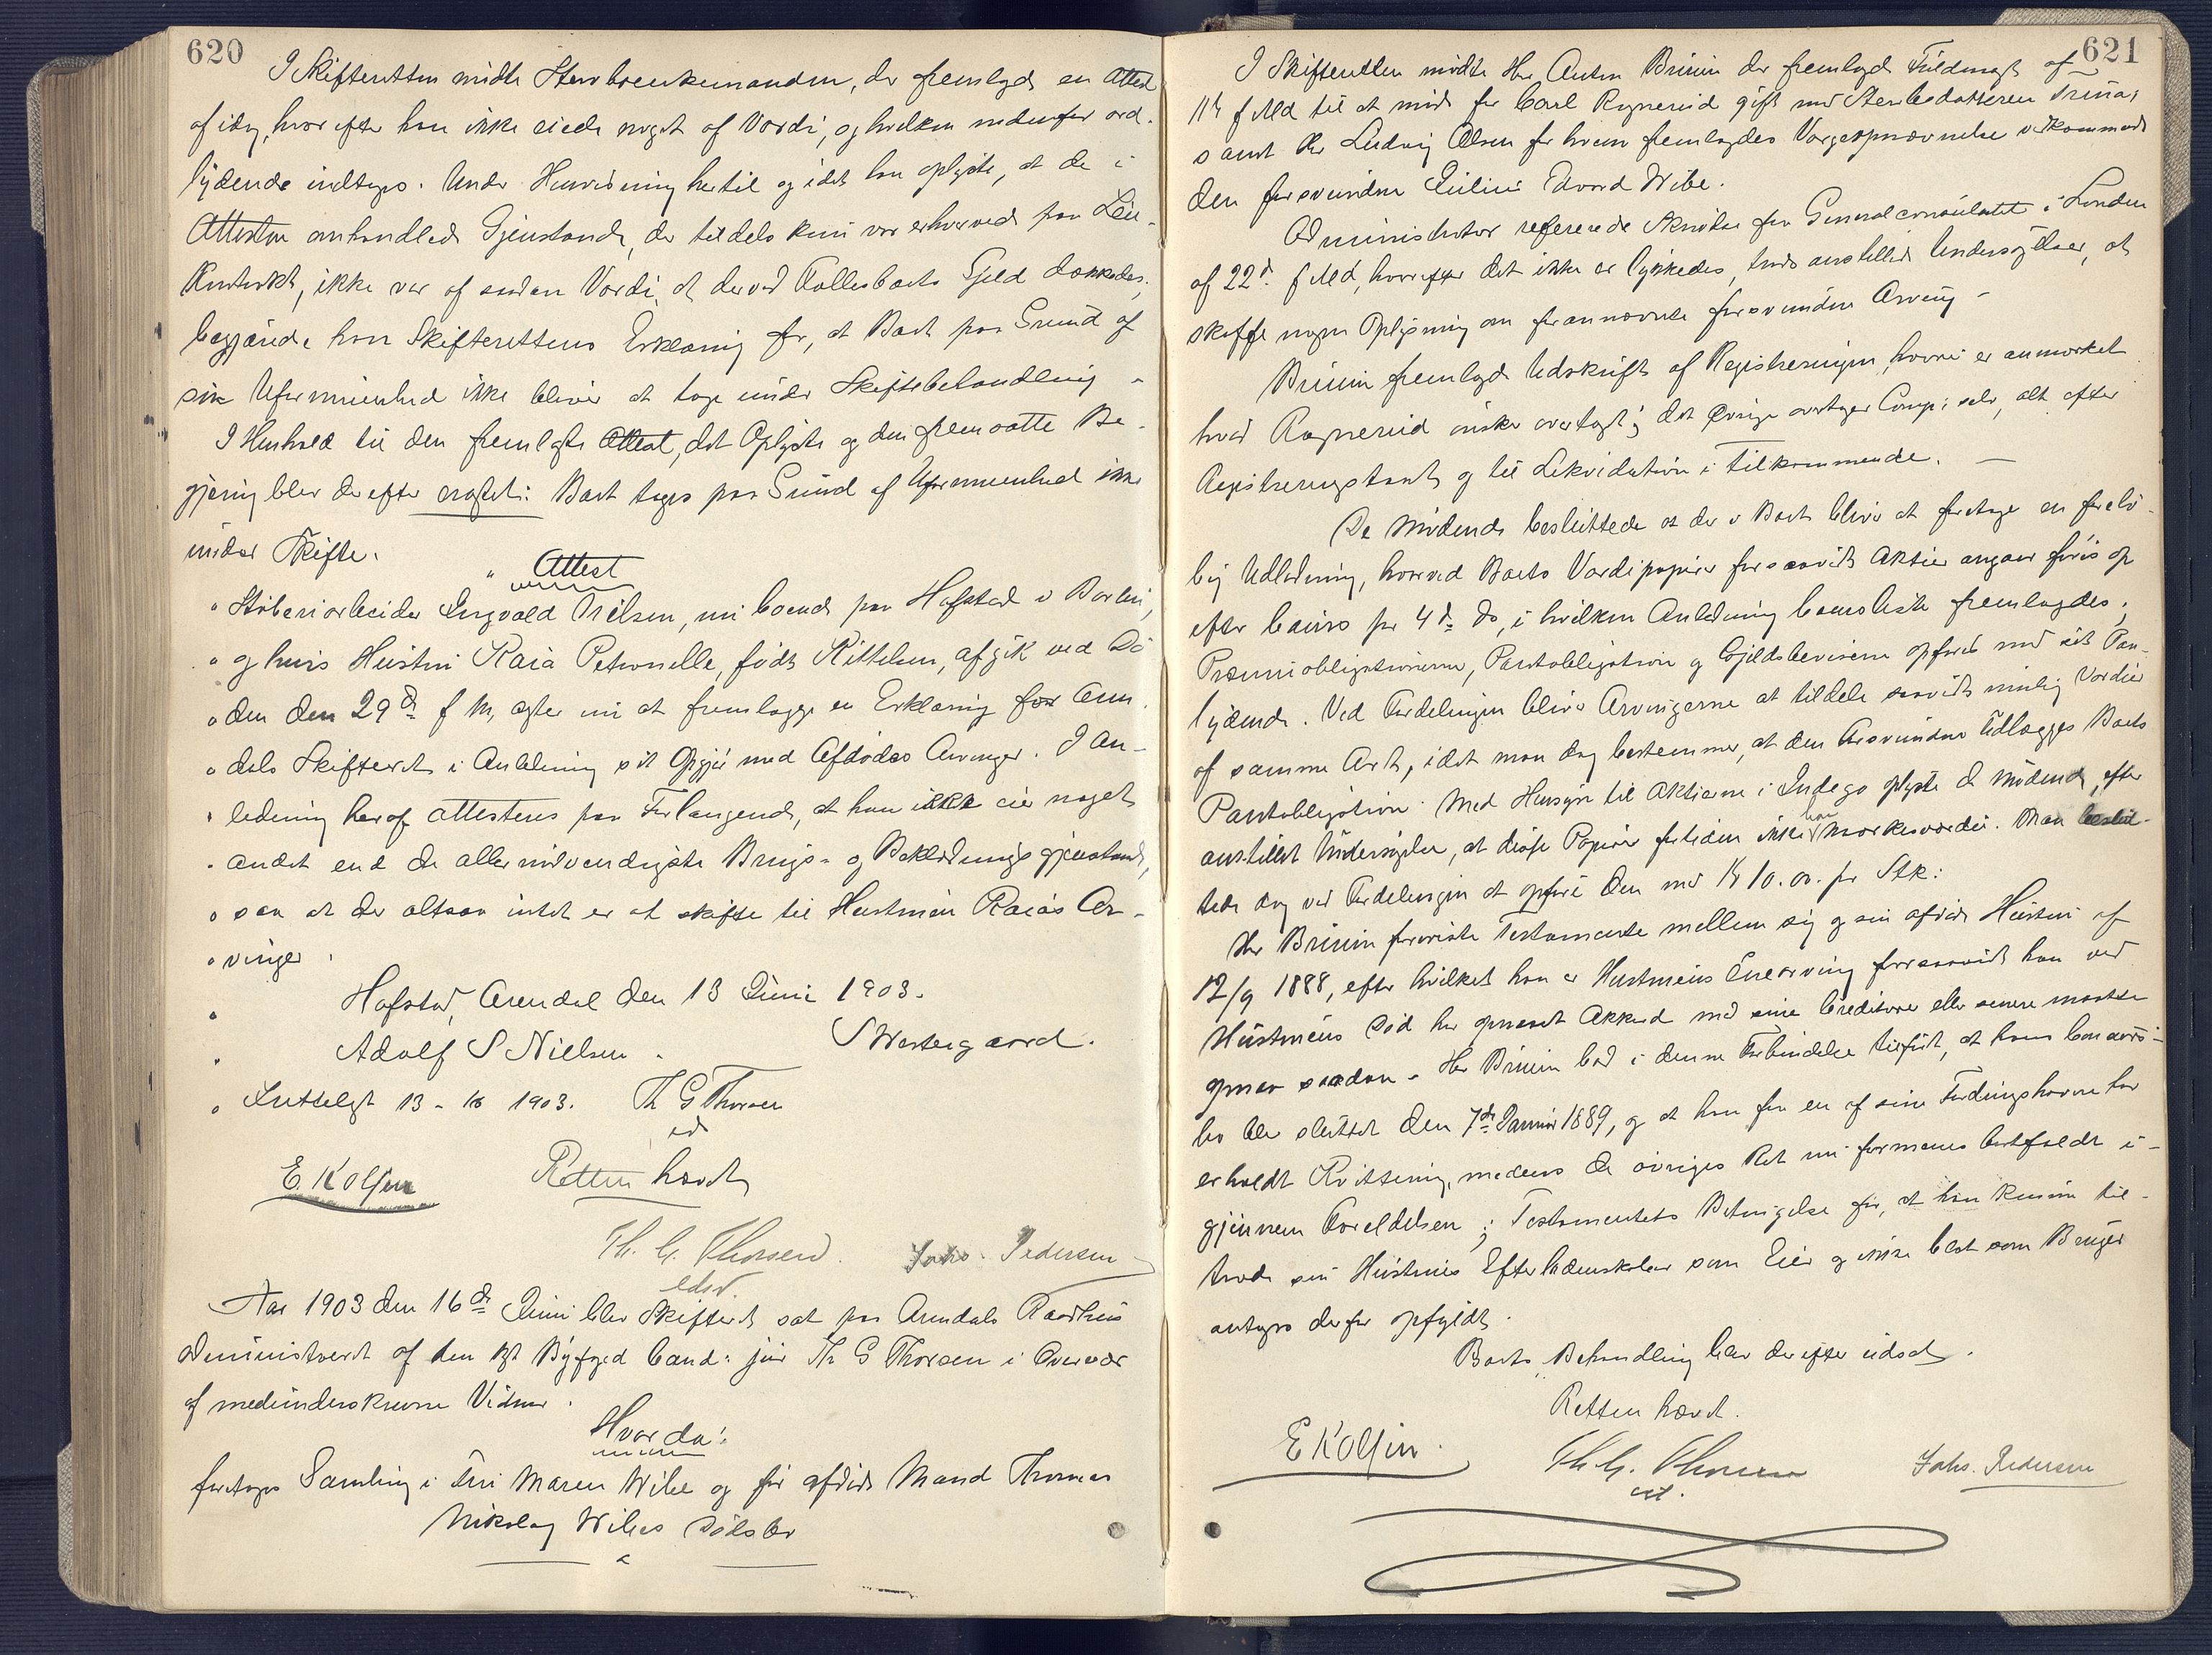 620
I Skifteretten mødte Stervboenkemanden, der fremlagde en Attest
af idag, hvorefter han ikke eiede noget af Værdi, og hvilken nedenfor ord-
lydende indtages. Under Henvisning hertil og idet han oplyste, at de i
Attesten omhandlede Gjenstande, der tildels kun var erhvervede paa Leie-
Kontrakt, ikke var af saadan Værdi, at derved Fællesboets Gjeld dækkedes,
begjærede han Skifterettens Erklæring for, at Boet paa Grund af
sin Uformuenhed ikke bliver at tage under Skiftebehandling -
I Henhold til den fremlagte Attest, det Oplyste og den fremsatte Be-
gjæring blev derefter eragtet: Boet tages paa Grund af Uformuenhed ikke
under Skifte.
" Attest
" Støberiarbeider Engvald Nilsen, nu boende paa Hofstad i Barbu,
" og hvis Hustru Kaia Petronelle, født Kittelsen, afgik ved Dø-
" den den 29de f M, agter nu at fremlægge en Erklæring for Aren-
" dals Skifteret i Anledning sit Opgjør med Afdødes Arvinger. I An-
" ledning heraf attesteres paa Forlangende, at han ikke eier noget
" andet end de allernødvendigste Brugs- og Beklædningsgjenstande,
" saa at der altsaa intet er at skifte til Hustruen Kaias Ar-
" vinger.
" Hofstad, Arendal den 13 Juni 1903.
" Adolf S Nielsen. S Westergaard.
" Indleveret 13-6 1903. Th G Thorsen
ed
E. Kolsen Retten hævet
Th. G. Thorsen. Johs. Pedersen
edsv.
Aar 1903 den 16de Juni blev Skifteret sat paa Arendals Raadhus
administreret af den kst Byfoged Cand: jur Th G Thorsen i Overvær
af medunderskrevne Vidner.
Hvorda:
foretoges Samling i Fru Maren Wibe og før afdøde Mand Thomas
Nikolay Wibes Dødsbo
621
I Skifteretten mødte Hr Anton Bruun der fremlagde Fuldmagt af
11te f Md til at møde for Carl Rognerud gift med Stervbodatteren Trina;
samt Hr Ludvig Olsen for hvem fremlagdes Værgeopnævnelse vedkommende
den forsvundne Eilius Edvard Wibe.
Administrator refererede Skrivelse fra Generalconsulatet i London
af 22de f Md, hvorefter det ikke er lykkedes, trods anstillede Undersøgelser, at
skaffe nogen Oplysning om førnævnte forsvundne Arving -
Bruun fremlagde Udskrift af Registreringen, hvori er anmærket
hvad Rognerud ønsker overtaget; det øvrige overtager Comp: selv, alt efter
Registreringstaxt og til Likvidation i Tilkommende. -
De Mødende besluttede at der i Boet bliver at foretage en forelø-
big Udlodning, hvorved Boets Værdipapirer forsaavidt Aktier angaar føres op
efter Cours pr 4de ds, i hvilken Anledning Coursliste fremlagdes;
Præmieobligationerne, Pantobligation og Gjeldsbeviserne opføres med sit Paa-
lydende. Ved Fordelingen bliver Arvingerne at tildele saavidt mulig Værdier
af samme Art, idet man dog bestemmer, at den Forsvundne udlægges Boets
Pantobligation. Med Hensyn til Aktierne i Indego oplyste de Mødende, efter
anstillet Undersøgelse, at disse Papirer fortiden ikke har Markedsværdi. Man beslut-
tede dog ved Fordelingen at opføre den med Kr 10.00 pr Stk:
Hr Bruun foreviste Testamente mellem sig og sin afdøde Hustru af
12/9 1888, efter hvilket han er Hustruens Enearving forsaavidt han ved
Hustruens Død har opnaaet Akkord med sine Creditorer eller senere maatte
opnaa saadan. Hr Bruun bad i denne Forbindelse tilført, at hans Concurs-
bo blev sluttet den 7de Januar 1889, og at han fra en af sine Fordringshavere har
erholdt Kvittering, medens de øvriges Ret nu formenes bortfaldt i-
gjennem Forældelsen; Testamentets Betingelse for, at han kunne til-
træde sin Hustrues Efterladenskaber som Eier og ikke blot som Bruger
antages derfor opfyldt.
Boets Behandling blev derefter udsat.
Retten hævet.
E Kolsen. Th. G. Thorsen Johs. Pedersen
cst.